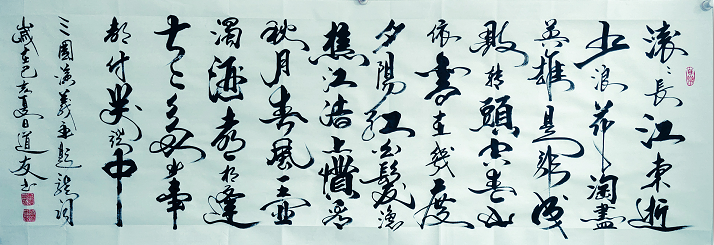 滚滚長江東逝
水浪花淘盡
英雄是非成
敗轉頭空青山
依舊在幾度
夕陽紅白髮漁
樵江渚上慣看
秋月春風一壺
濁酒喜相逢
古今多少事
都付笑談中
三國演義詞
歲在己亥夏日道友书